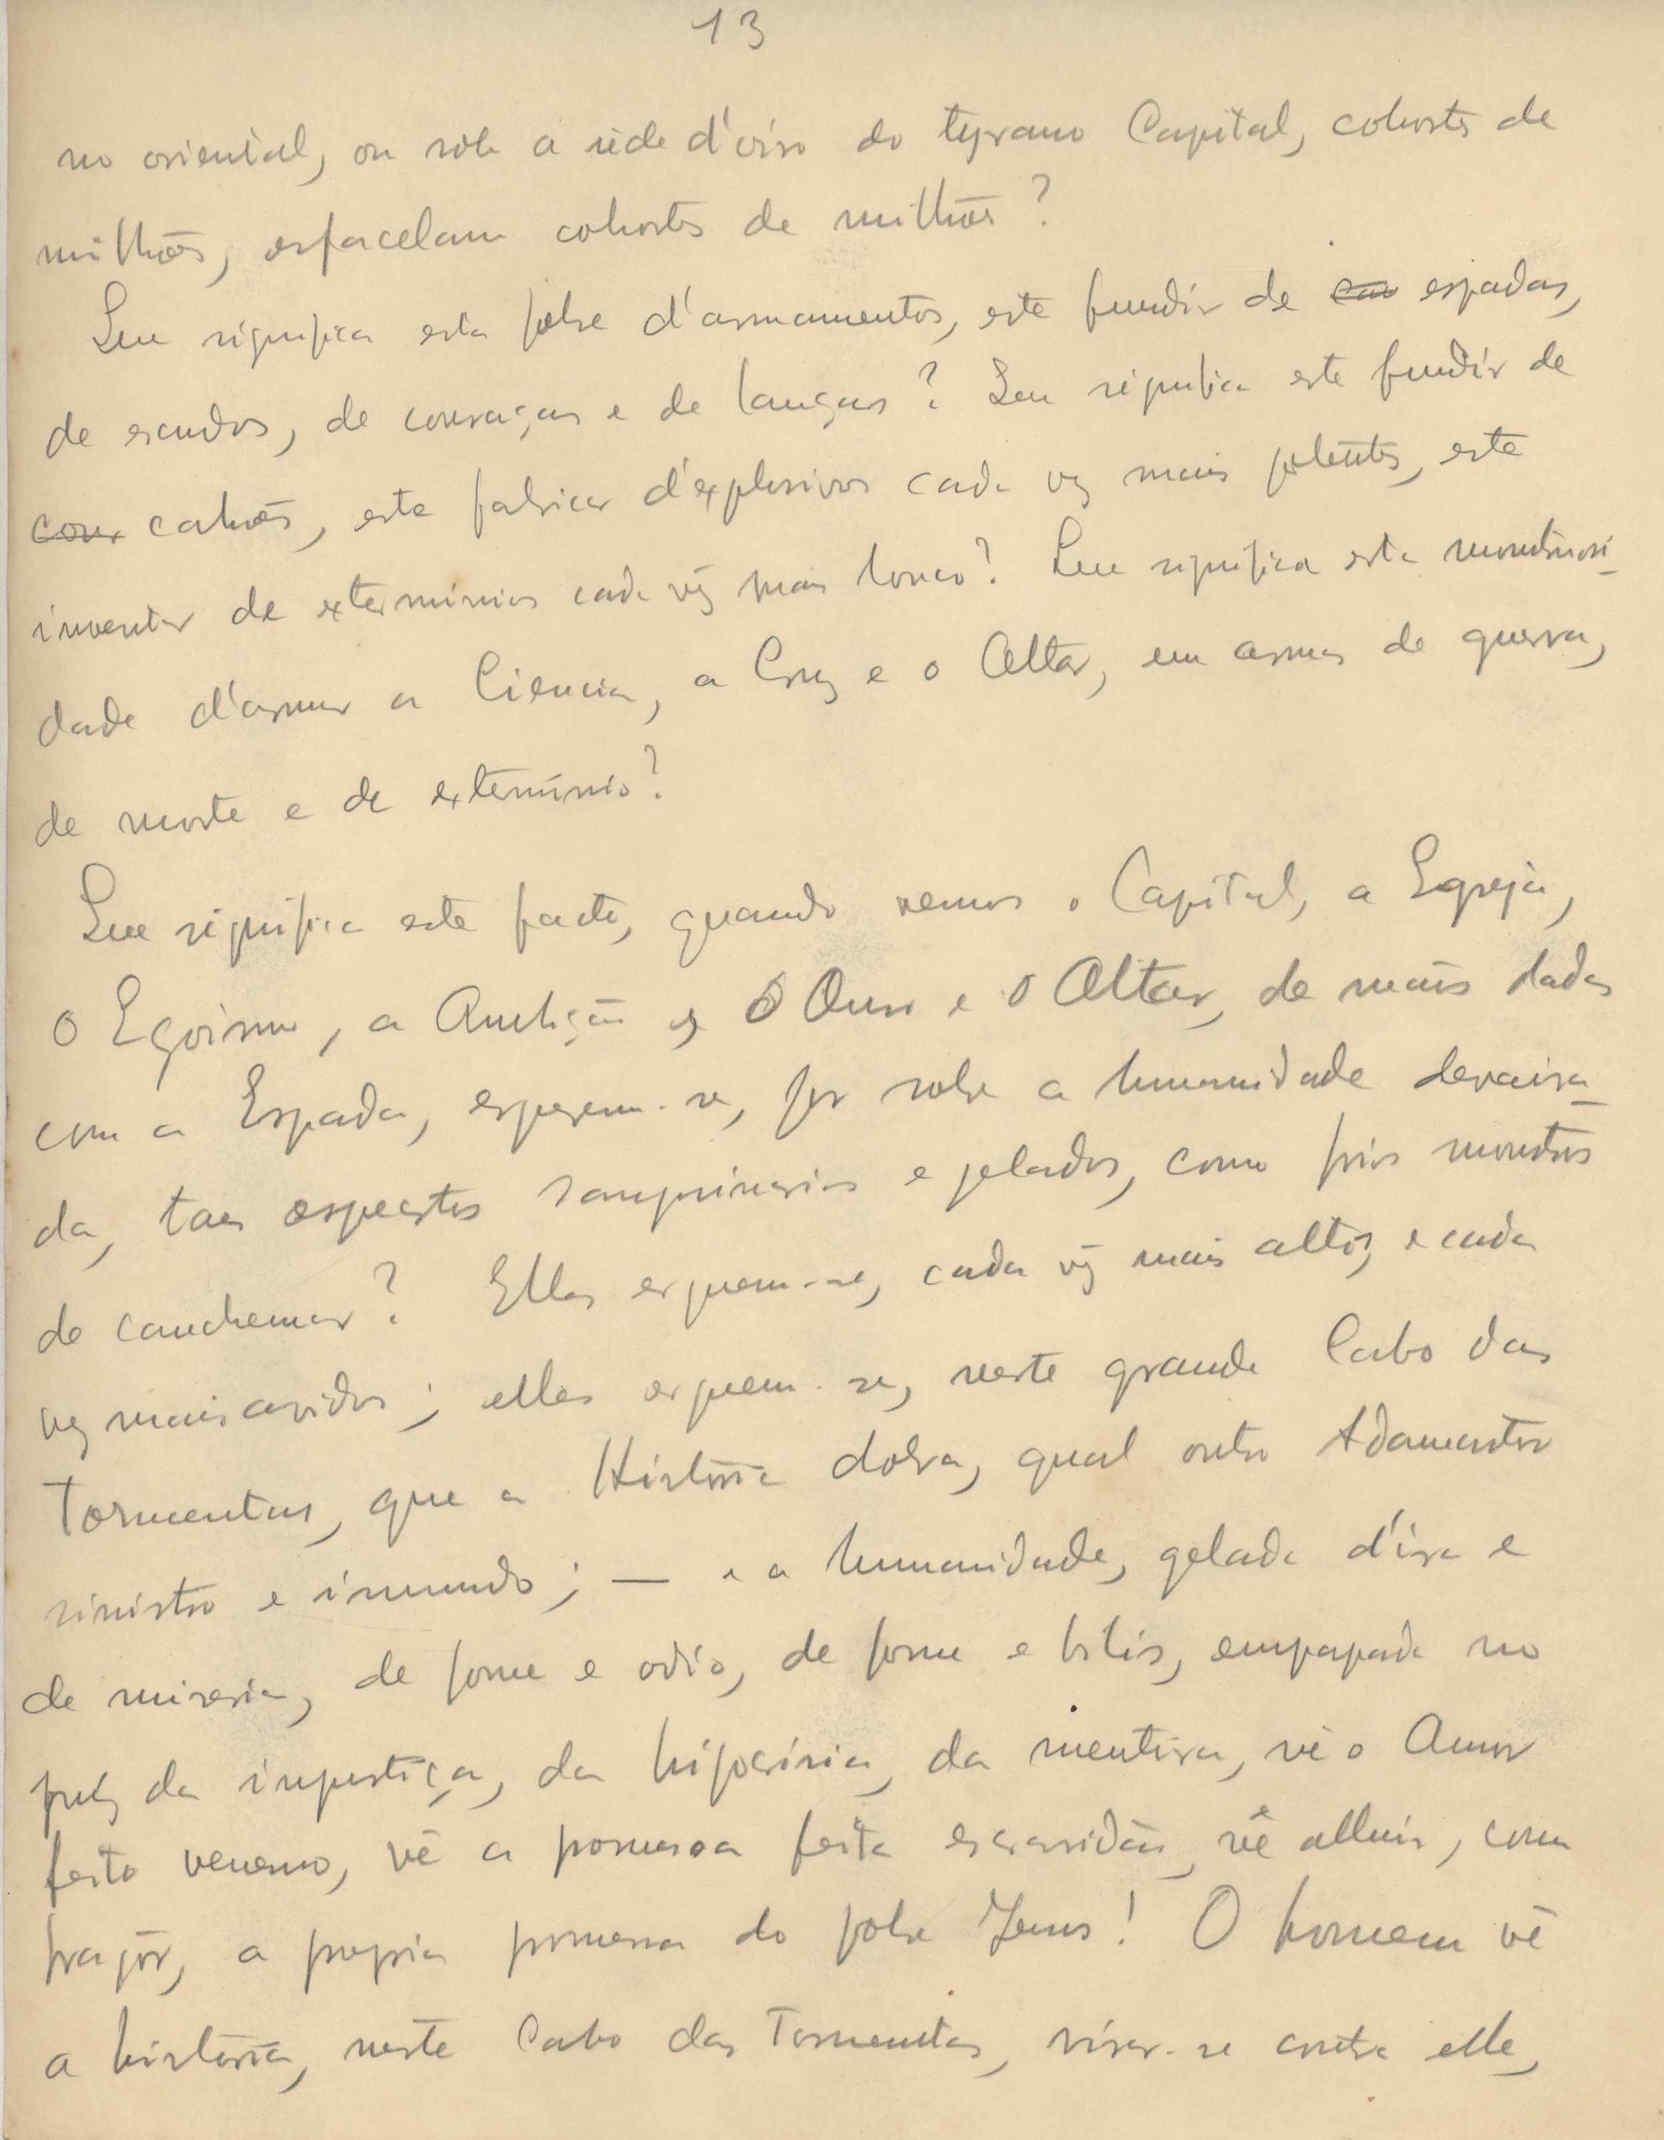 13
no oriental, ou sob a sêde d'oiro do tyrano Capital, cohortes de
milhões, esfacelam cohortes de milhões?
Que significa esta febre d'armamentos, este fundir de espadas,
de escudos, de couraças e de lanças? Que significa este fundir de
cour canhões, este fabricar d'explosivos cada vez mais potentes, este
inventar de exterminios cada vez mais louco? Que significa esta monstruosi-
dade d'armar a Ciencia, a Cruz e o Altar, em armas de guerra,
de morte e de exterminio?
Que significa este facto, quando vemos o Capital, a Egreja,
o Egoismo, a Ambição, o Ouro e o Altar, de mãos dadas
com a Espada, erguerem-se, por sobre a humanidade desvaira-
da, taes espectros sanguinarios e gelados, como frios monstros
de cauchemar? Elles erguem-se, cada vez mais altos, e cada
vez mais avidos; elles erguem-se, neste grande Cabo das
Tormentas, que a Historia dobra, qual outro Adamastor
sinistro e immundo; — e a humanidade, gelada d'ira e
de miseria, de fome e odio, de fome e bilis, empapada no
pus da injustiça, da hipocrisia, da mentira, vê o Amor
feito veneno, vê a promessa feita escravidão, vê alluir, com
fragôr, a propria promessa do pobre Jesus! O homem vê
a historia, neste Cabo das Tormentas, virar-se contra elle,